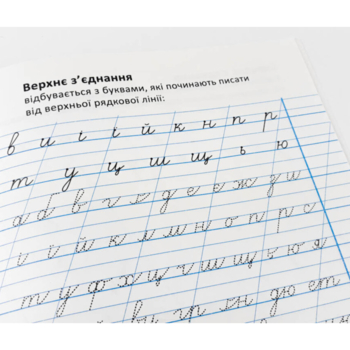 Верхнє з’єднання
відбувається з буквами, які починають писати
від верхньої рядкової лінії:
в и і ї й к н п р
т у ц ш щ ь ю
а б в г х д е є ж з и
і ї й к л м н о п р с
т у ф х ц ч ш щ ь ю я
ви гр лн дю ет